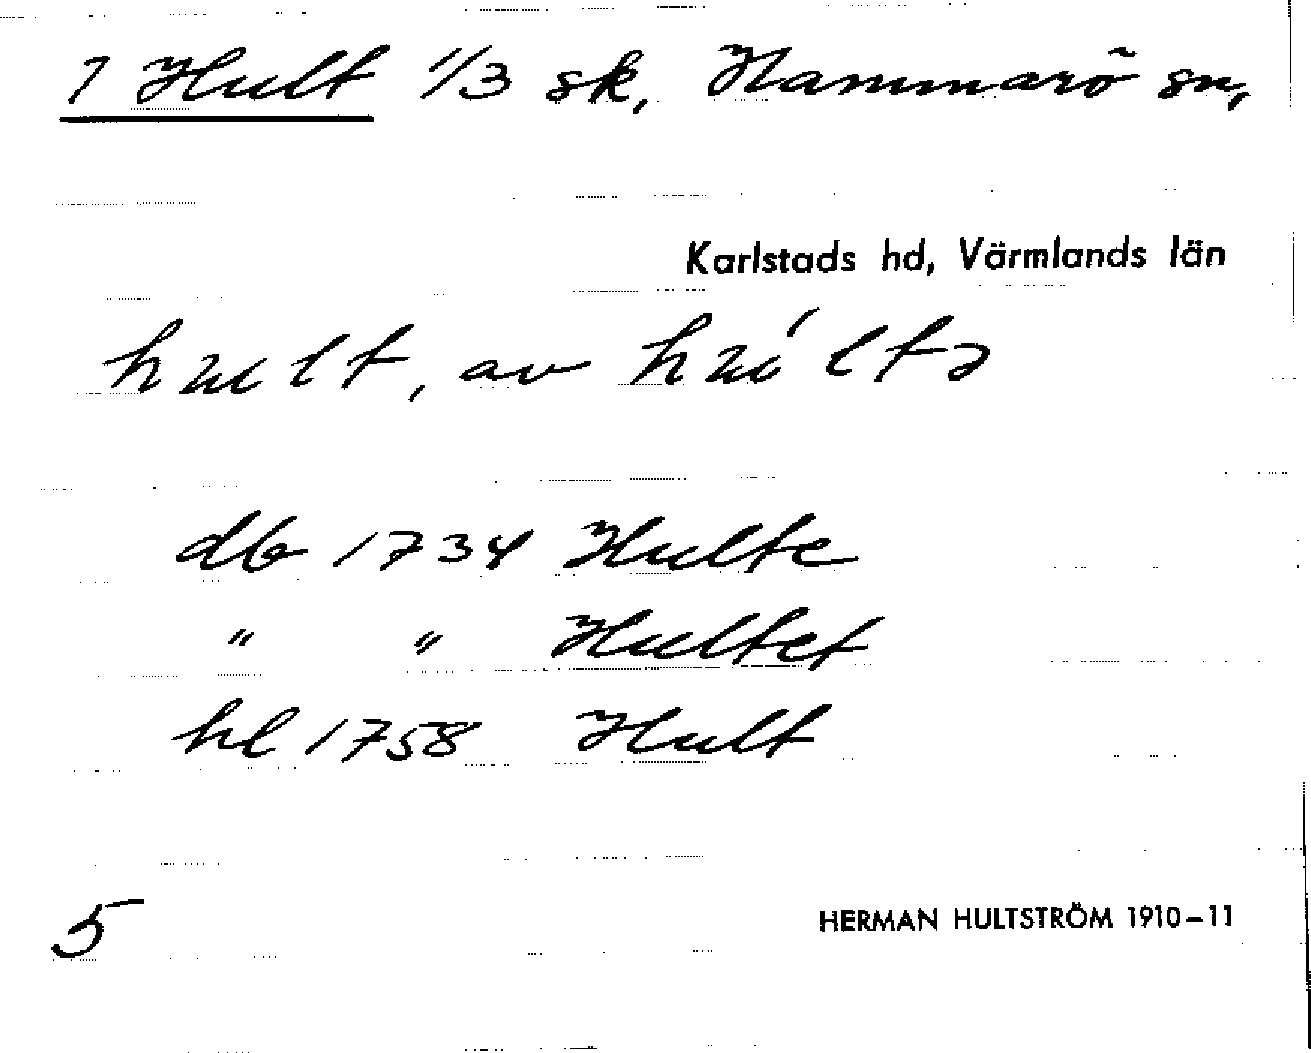 7 Hult 1/3 sk, Hammarö sn,
Karlstads hd, Värmlands län
hult, av
db 1734 Hulte
" " Hultet
hl 1758 Hult
5
HERMAN HULTSTRÖM 1910-11